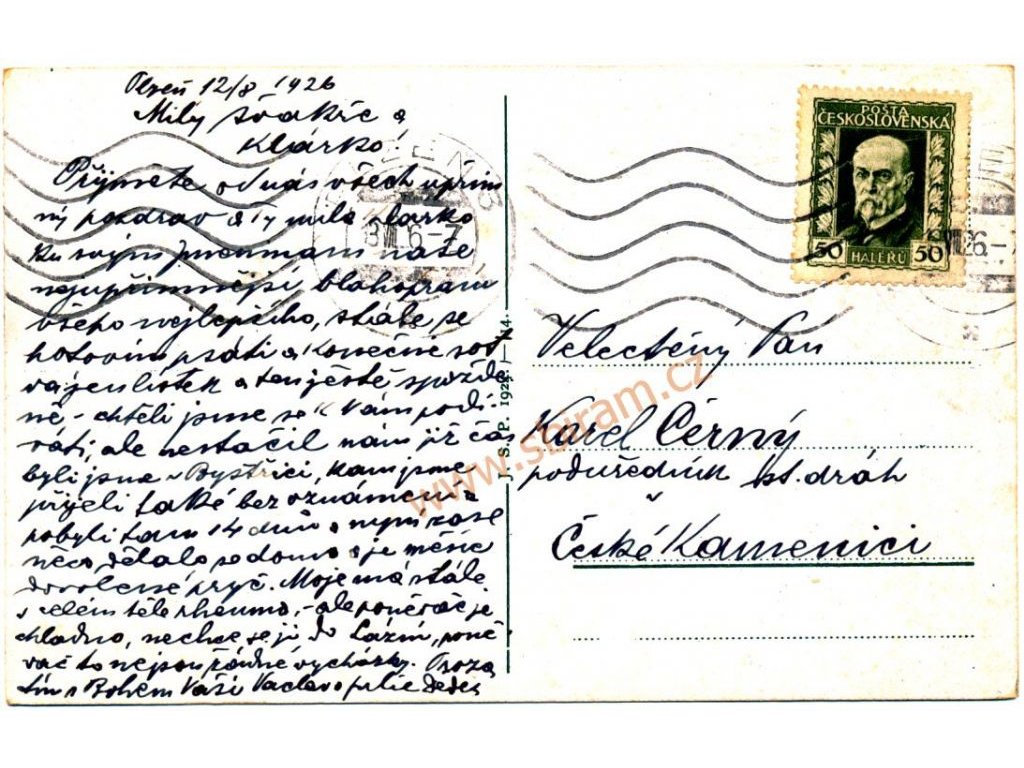 Plzeň 12/8 1926
Milý švakře a
Klárko!
Přijmete od nás všech upřím
ný pozdrav a Ty milá Klárko
ku svým jmeninam naše
nejupřimnější blahopřání
všeho nejlepšího, stále se
hotovím psáti a konečně sot
va jen lístek a ten ještě spozdě
ně - chtěli jsme se k Vám podí
vati, ale nestačil nám již čas
byli jsme v Bystřici, kam jsme
přijeli také bez oznámení a
pobyli tam 14 dnů a nyní zase
něco dělalo se doma a je měsíc
dovolené pryč. Moje má stále
v celém těle rheuma, - ale poněvač je
chladno, nechce se jí do Lázní, poně
vač to nejsou řádné vycházky. Proza
tím s Bohem Vaši Vaclav
J. S. P. 1925. — 14.
POŠTA
ČESKOSLOVENSKÁ
50 HALÉŘŮ 50
Velectěný Pán
Karel Černý
podúředník st. dráh
v
České Kamenici
www.sbiram.cz